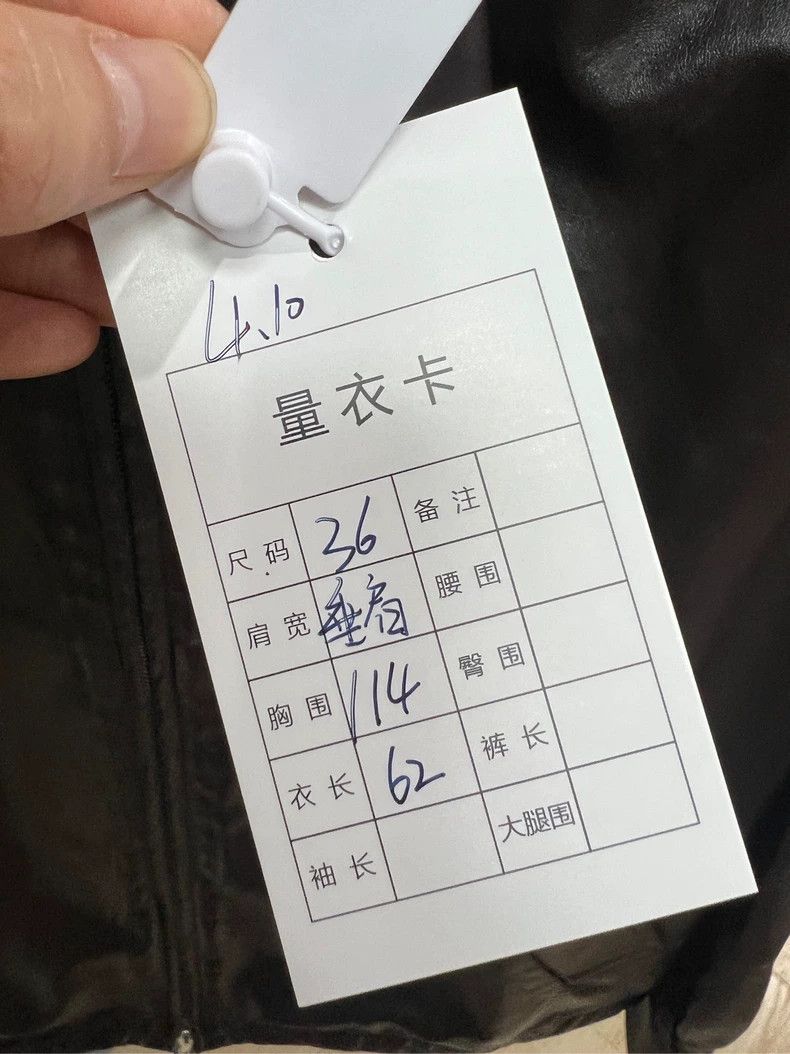 4.10
量衣卡
尺码 36 备注
肩宽 垂肩 腰围
胸围 114 臀围
衣长 62 裤长
袖长 大腿围